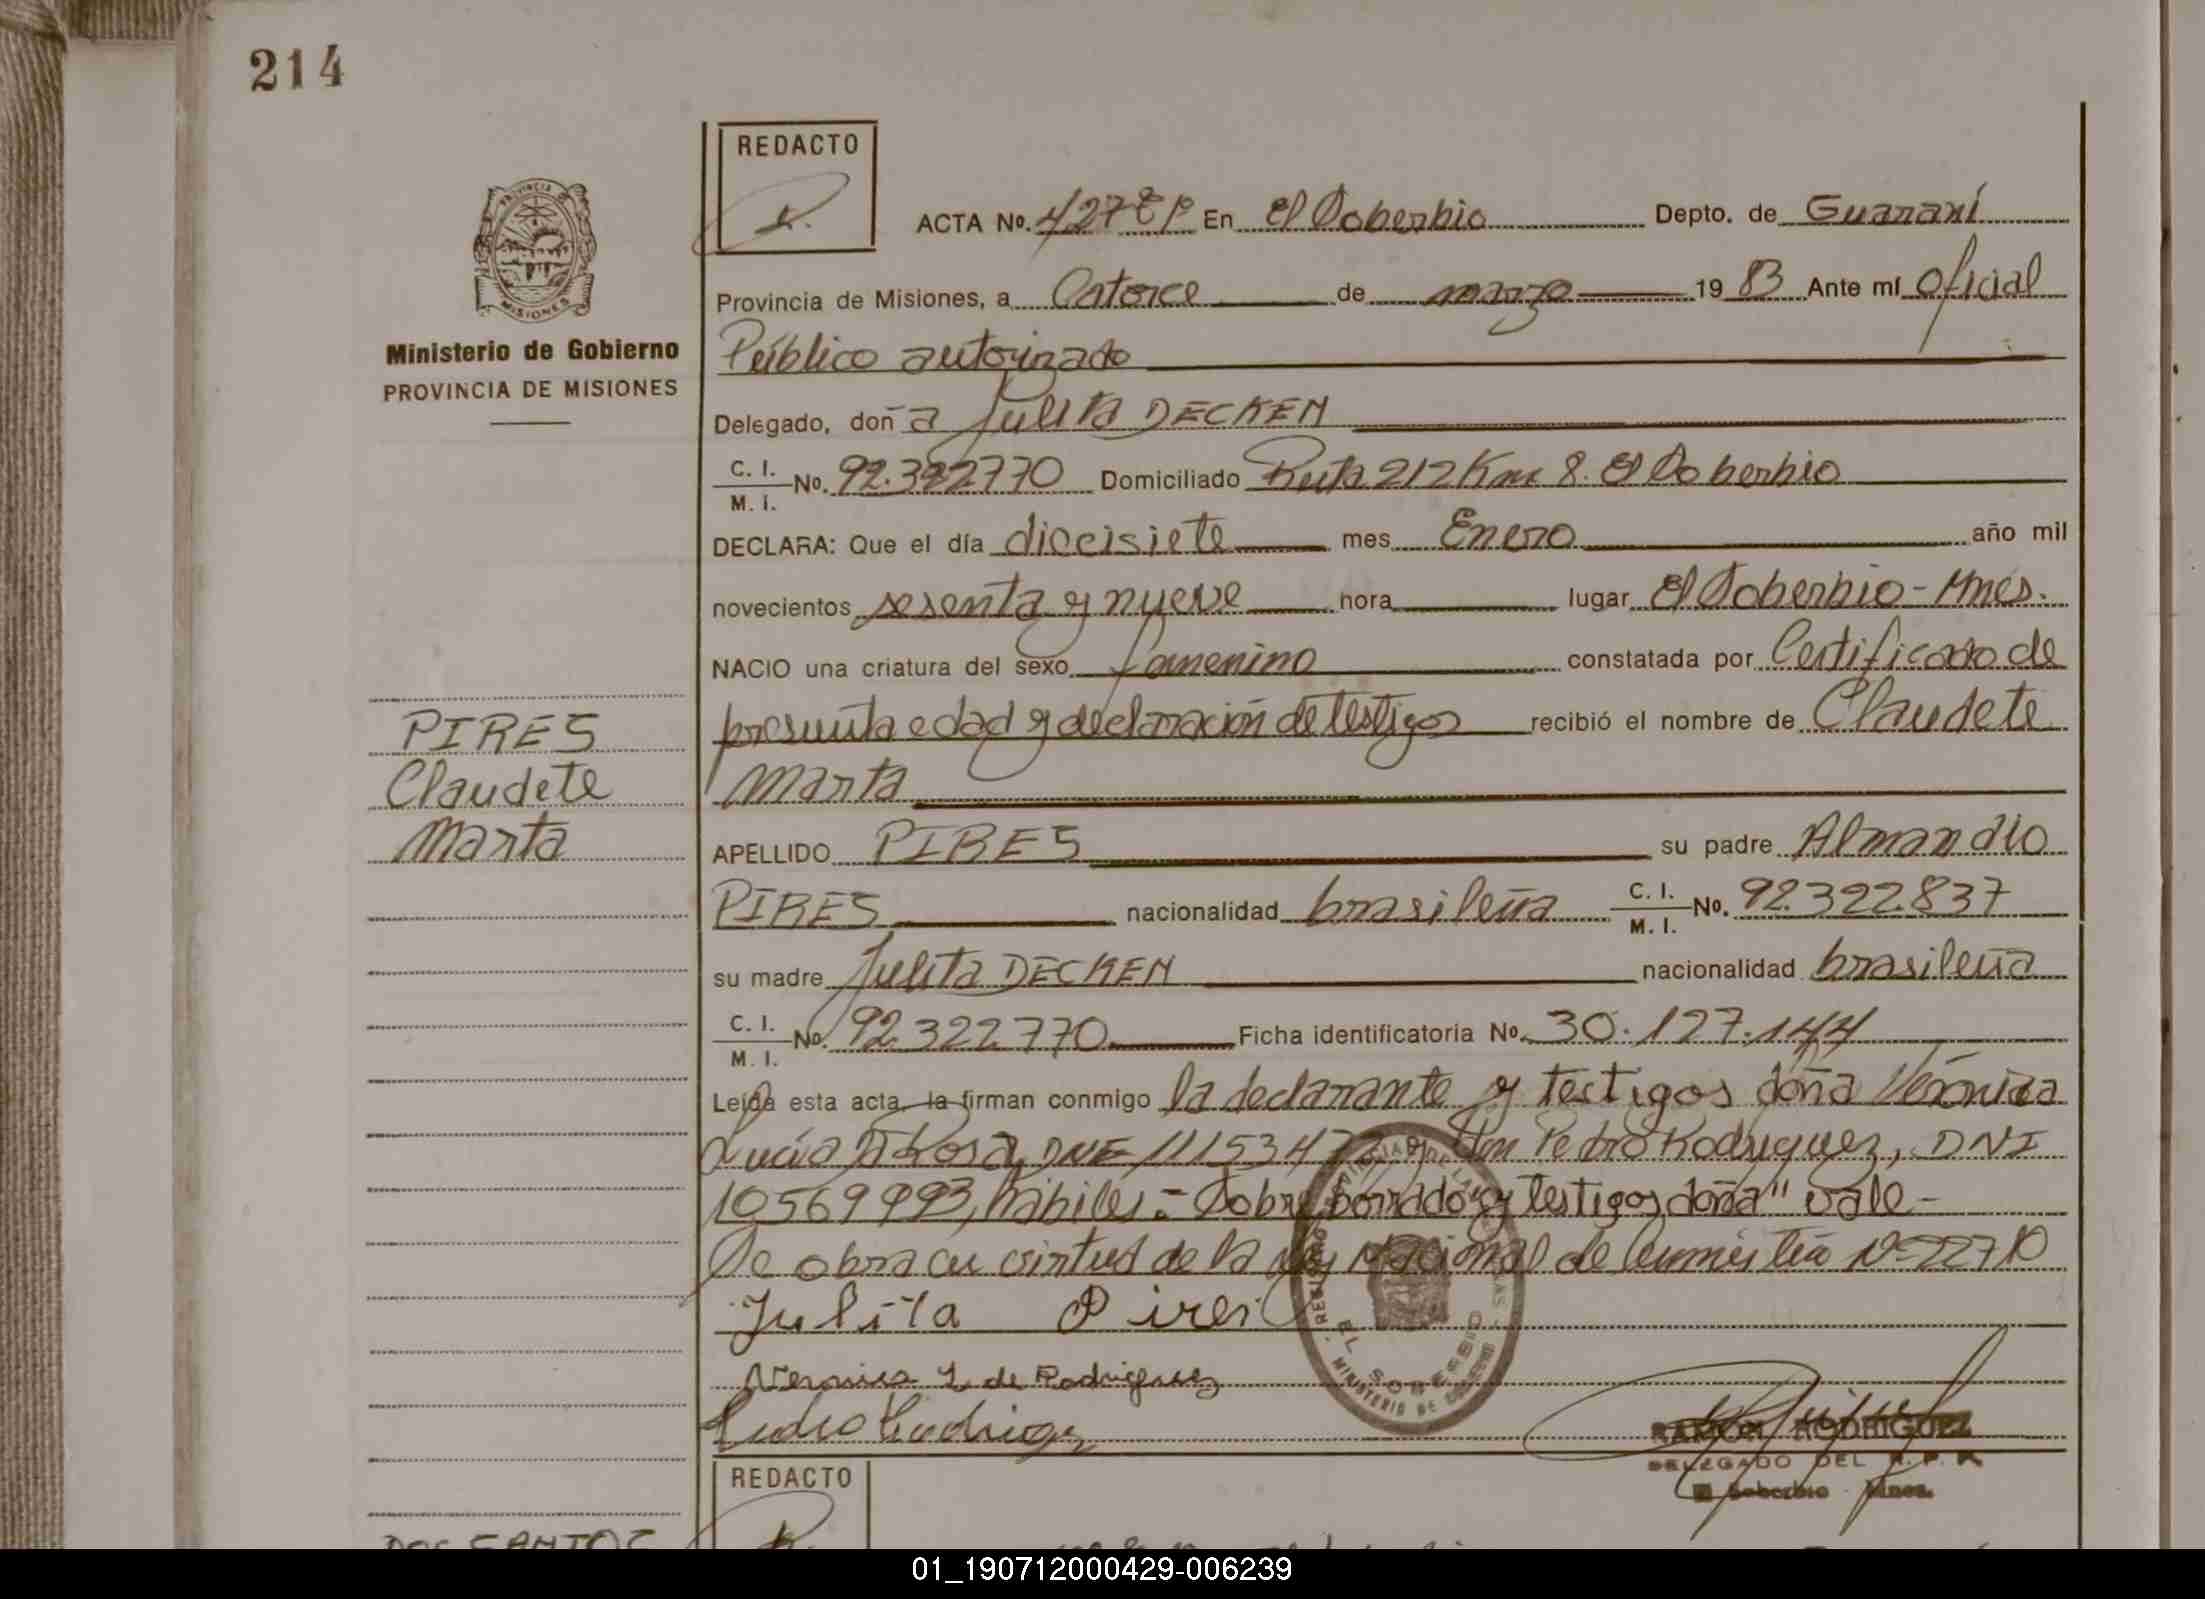 214
REDACTO
ACTA No. 427 En El Soberbio Depto. de Guaraní
Provincia de Misiones, a Catorce de marzo 1983 Ante mí Oficial
Ministerio de Gobierno
PROVINCIA DE MISIONES
Público autorizado
Delegado, doña Julita DECKEN
C. I.
M. I.
No. 92.322770 Domiciliado Ruta 212 Km 8. El Soberbio
DECLARA: Que el día diecisiete mes Enero año mil
novecientos sesenta y nueve hora lugar El Soberbio - Mnes.
NACIO una criatura del sexo femenino constatada por Certificado de
presunta edad y declaración de testigos recibió el nombre de Claudete
Marta
PIRES
Claudete
Marta
APELLIDO PIRES su padre Almandio
PIRES nacionalidad brasileña C. I.
M. I.
No. 92.322.837
su madre Julita DECKEN nacionalidad brasileña
C. I.
M. I.
No. 92.322.770 Ficha identificatoria No. 30.127.144
Leída esta acta, la firman conmigo la declarante y testigos doña Verónica
Lucía Rosa, y don Pedro Rodriguez, DNI
10569993, hábiles = Sobre borrado "y testigos, doña" vale -
Se obra en virtud de la Ley Nacional de
Julita Pires
Veronica L de Rodriguez
REGISTRO PROVINCIAL DE LAS PERSONAS
EL SOBERBIO
MINISTERIO DE GOBIERNO
RAMON RODRIGUEZ
DELEGADO DEL R. P. P.
El Soberbio - Mnes.
REDACTO
DOS SANTOS
01_190712000429-006239